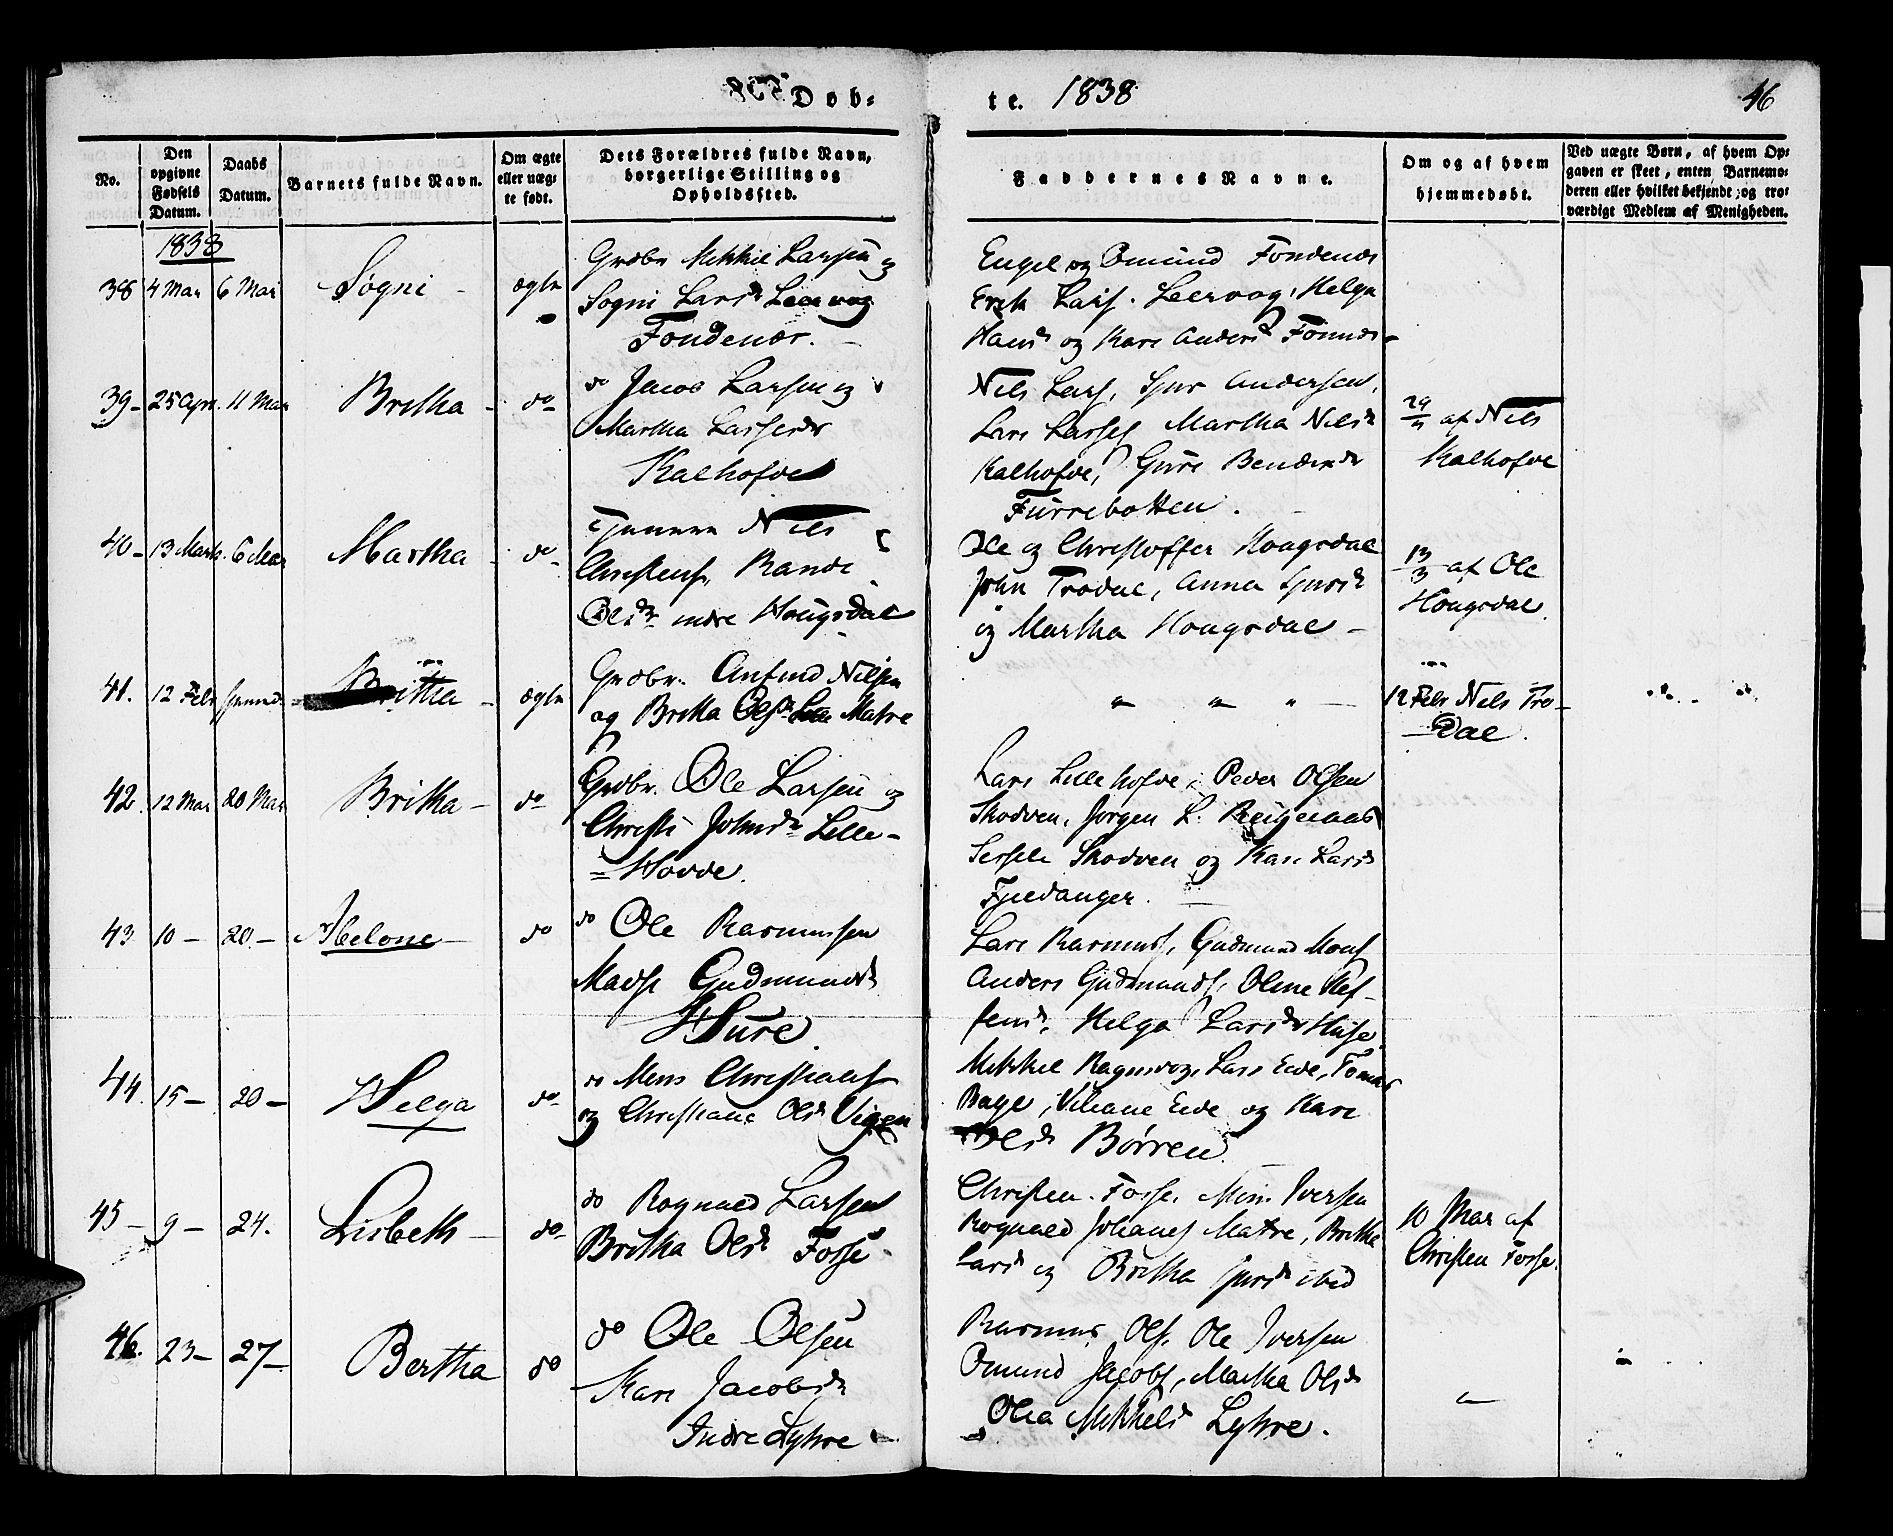 Døb-
te. 1838
46
No.
Den opgivne Fødsels Datum.
Daabs Datum.
Barnets fulde Navn.
Om ægte eller uægte født.
Dets Forældres fulde Navn, borgerlige Stilling og Opholdssted.
Faddernes Navne.
Om og af hvem hjemmedøbt.
Ved uægte Børn, af hvem Opgaven er skeet, enten Barnemoderen eller hvilket bekjendt og troværdigt Medlem af Menigheden.
1838
38 4 Mar 6 Mar Søgni - ægte
Grdbr Mikkil Larsen og
Sogni Larsd Leervog
Fondenær.
Engel og Omund Fondenæs
Erik Lars. Leervog, Helga
Hansd og Kari Andersd
39- 11 Mar Britha - do
do Jacob Larsen og
Martha Larsesdr
Kalhofve
Nils Lars, Sjur Andersen,
Lars Larses Martha Nilsd
Kalhofve, Guri
Furrebotten.
af Nils
Kalhofve
40- 13 Mark. 6 Mar Martha - do
Nils
Christens. Randi
Olsdr indre Hougsdal
Ole og Christoffer Hougsdal
John Trodal, Anna Sjursd
og Martha Hougsdal -
13/3 af Ole
Hougsdal.
41. 12 Febr Britha - ægte
Grdbr. Anfind Nilsen
og Britha Olsdr Matre
12 Febr Nils Tro-
dal.
42. 12 Mar 20 Mar Britha - do
Grdbr. Ole Larsen og
Christi Johnsdr Lille-
=Hovde.
Lars Lille hofve, Peder Olsen
Skodven, Jørgen L.
Skodven og Kari Larsd
Fjeldanger.
43 10 - 20 - Helone do
do Ole Rasmussen
Gudmundsd
Lars Rasmuss, Gudmund
Anders Gudmunds, Oline Stef-
fensd, Helga Larsdr
44. 15 - 20 - Helga do
do Mons
og Christiane Olsd Vigen
Mikkel Lars Eide,
Eide og Kari
Olsd Børren
45 - 9 - 24. Lisbeth - do
do Rognald Larsen
Britha Olsd Fosse.
Christen Fosse, Iversen
Rognald Johanes Matre, Britha
Larsd og Britha Sjursd ibid
10 Mar af
Christen Fosse.
46. 23 - 27 - Bertha do
do Ole Olsen
Kari Jacobsdr
Indre Lykre
Rasmus Ols. Ole Iversen
Omund Jacobs, Martha Olsd
Olia Mikkelsd Lykre.